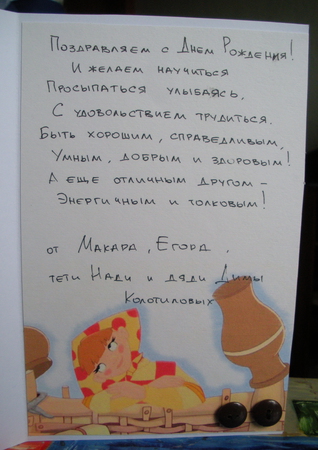 Поздравляем с Днем Рождения!
И желаем научиться
Просыпаться улыбаясь,
С удовольствием трудиться.
Быть хорошим, справедливым,
Умным, добрым и здоровым!
А еще отличным другом –
Энергичным и толковым!
от Макара, Егора,
тети Нади и дяди Димы
Колотиловых